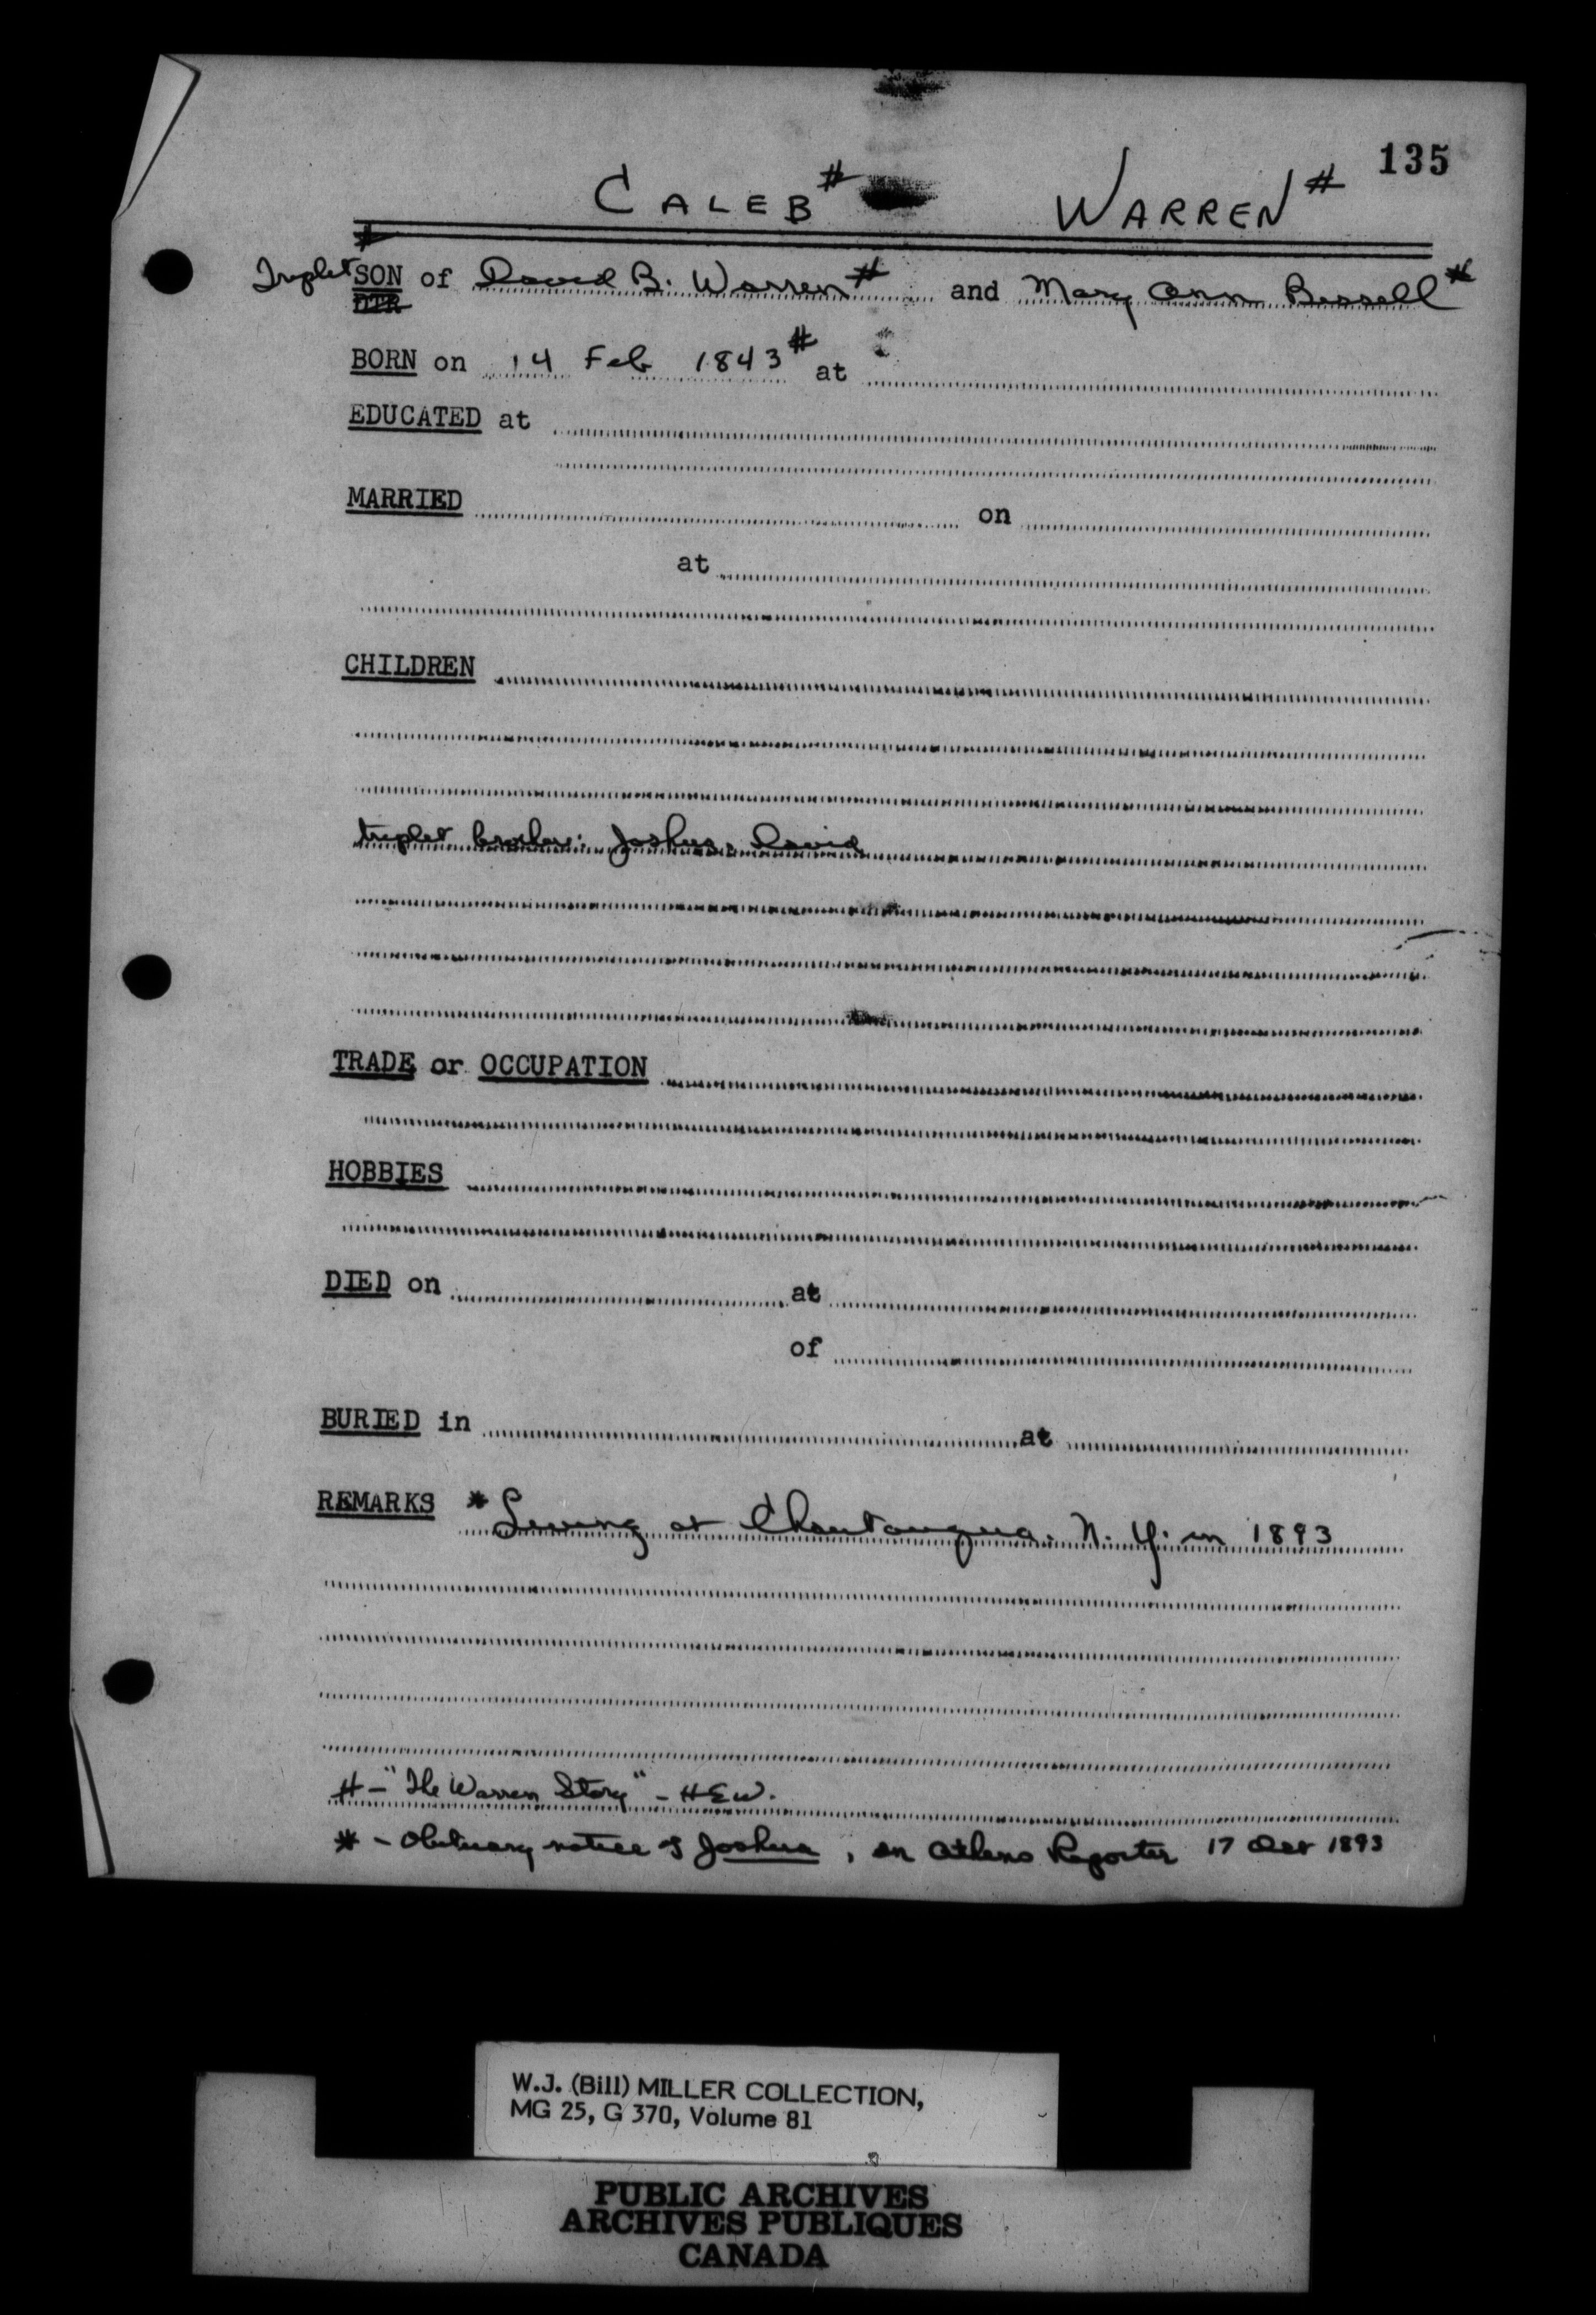 135
CALEB # WARREN #
Triplet # SON of David B. Warren # and Mary Ann Bissell *
DTR
BORN on 14 Feb 1843 # at
EDUCATED at
MARRIED on
at
CHILDREN
triplet brothers: Joshua, David
TRADE or OCCUPATION
HOBBIES
DIED on at
of
BURIED in at
REMARKS * Living at Chautauqua, N.Y. in 1893
# - "The Warren Story" - HEW.
* - Obituary notice of Joshua, in Athens Reporter 17 Oct 1893
W.J. (Bill) MILLER COLLECTION,
MG 25, G 370, Volume 81
PUBLIC ARCHIVES
ARCHIVES PUBLIQUES
CANADA